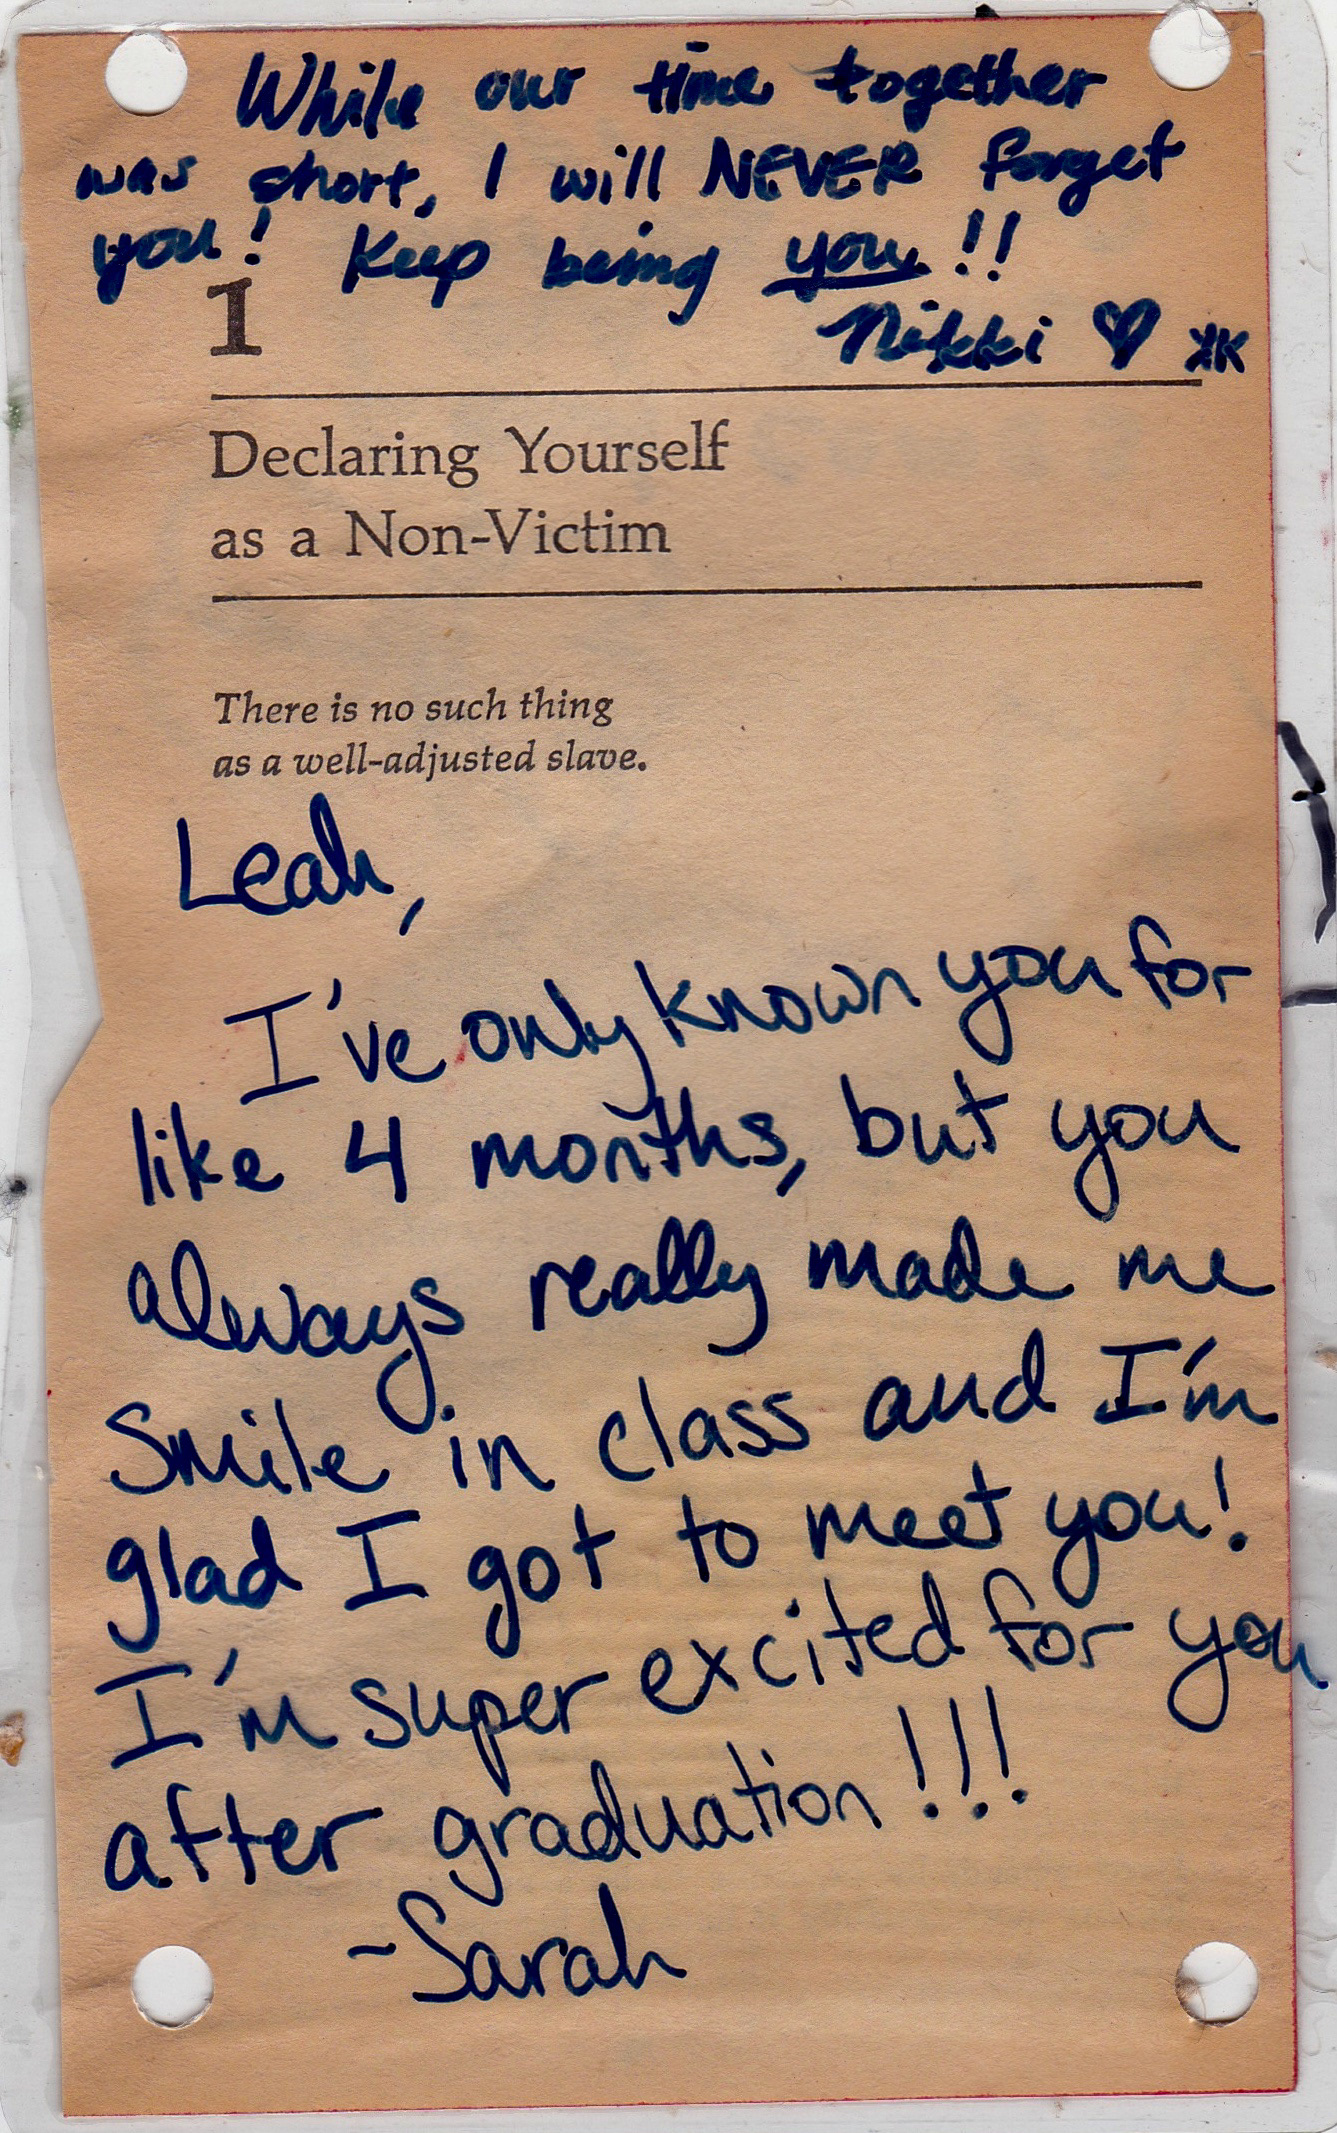 While our time together
was short, I will NEVER forget
you! Keep being you!!
Nikki ♡ XK
1
Declaring Yourself
as a Non-Victim
There is no such thing
as a well-adjusted slave.
Leah,
I've only known you for
like 4 months, but you
always really made me
smile in class and I'm
glad I got to meet you!
I'm super excited for you
after graduation!!!
~Sarah